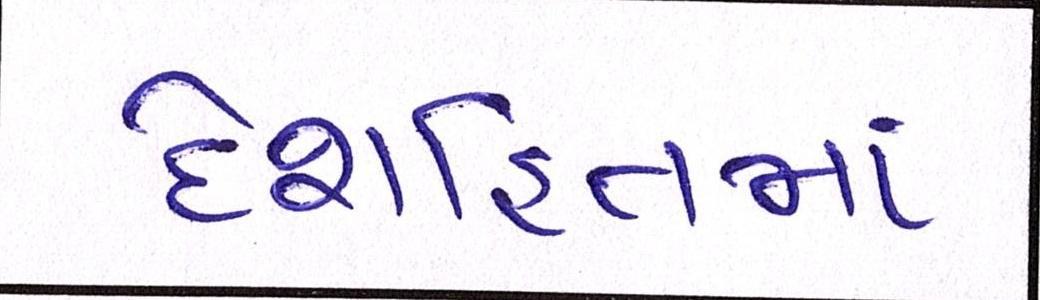 દેશહિતમાં